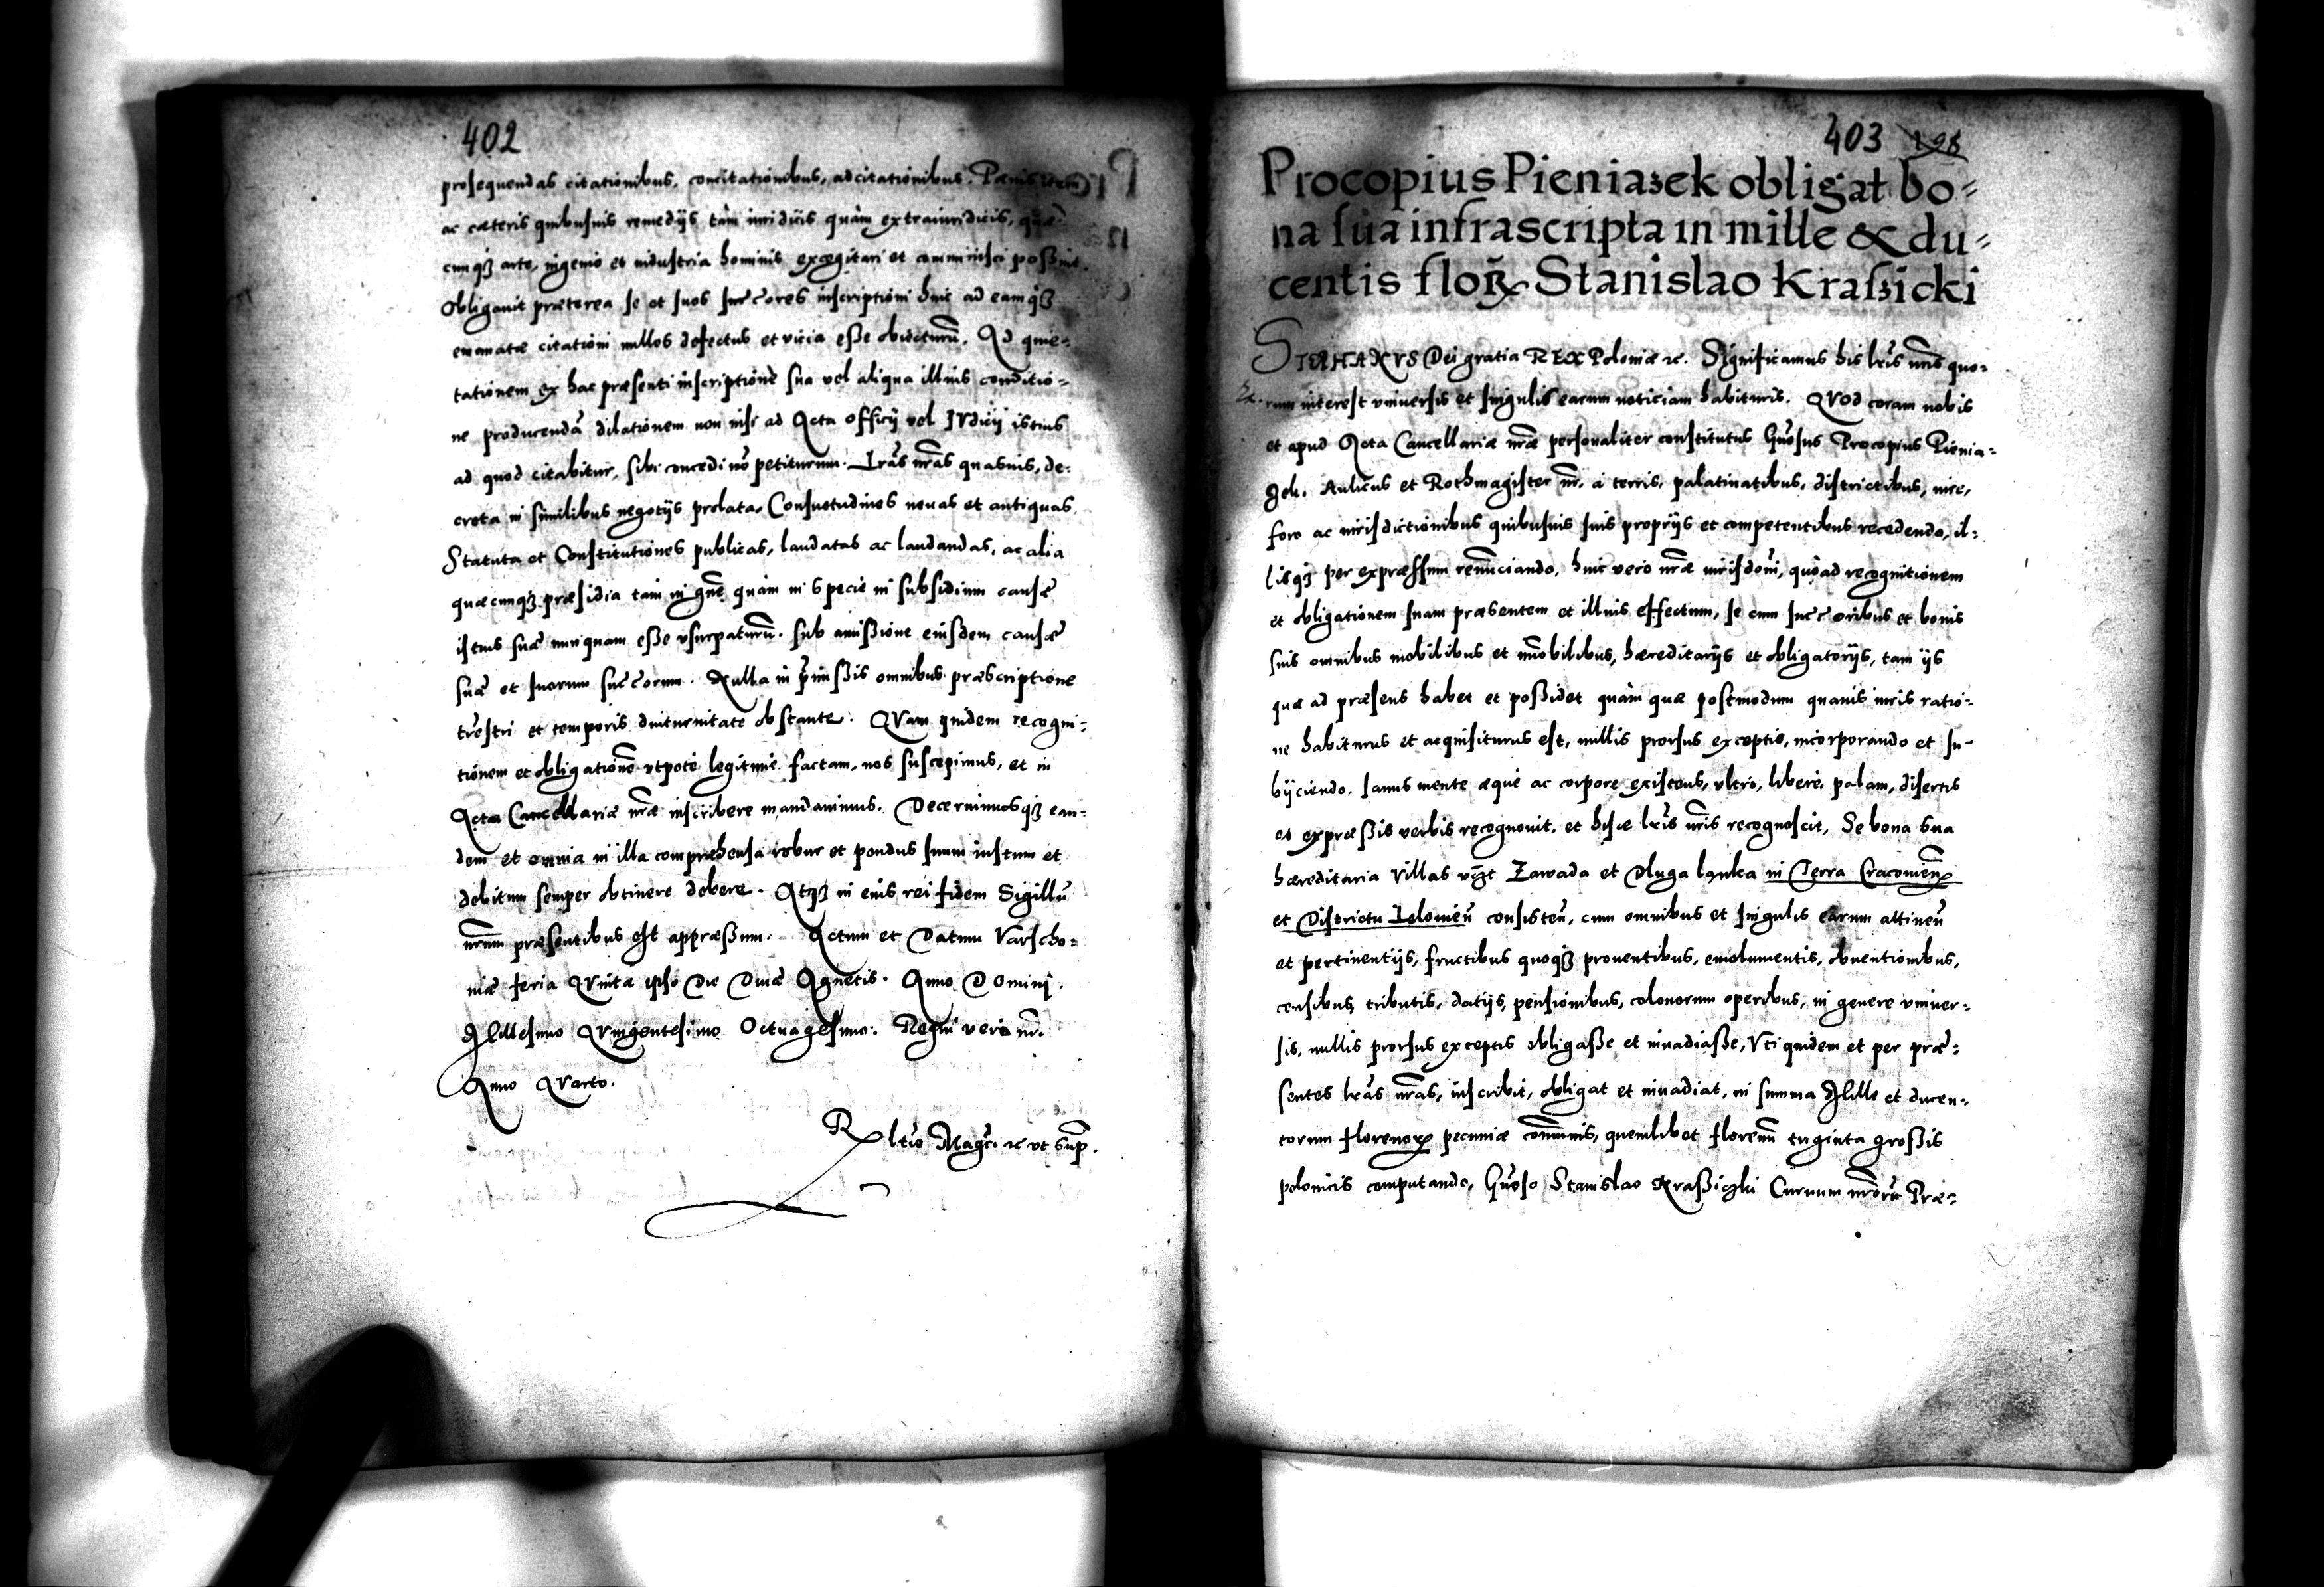 402
prosequendas citationibus, concitationibus, adcitationibus. Pœnis item
ac cæteris quibusuis remedijs tàm iuridicis quàm extraiuridicis, quæ
cunqȝ arte, ingenio et industria hominis excogitari et comminisci possint.
Obligauit præterea se et suos succores inscriptioni huic ad eamqȝ
emanatæ citationi nullos defectus et vicia esse obiecturū. Ad quie-
tationem ex hac præsenti inscriptione sua vel aliqua illius conditio-
ne producendā dilationem non nisi ad Acta officij vel Iudicij istius
ad quod citabitur, sibi concedi nō petiturum. Lrãs nrãs quasuis, de-
creta in similibus negotijs prolata, Consuetudines nouas et antiquas,
Statuta et Constitutiones publicas, laudatas ac laudandas, ac alia
quæcunqȝ præsidia tam in gñe quàm in specie in subsidium causæ
istius suæ nunquam esse vsurpaturū. sub amissione eiusdem causæ
suæ et suorum succorum. Nulla in p̄missis omnibus præscriptione
trēstri et temporis diuturnitate obstante. QVam quidem recogni-
tionem et obligationē vtpote legitime factam, nos suscepimus, et in
Acta Cancellariæ nrẽ inscribere mandauimus. Decernimusqȝ ean-
dem et omnia in illa comprehensa robur et pondus suum iustum et
debitum semper obtinere debere. Atqȝ in eius rei fidem Sigillū
nrũm præsentibus est appræssum. Actum et Datum Varscho-
uiæ feria Quinta ipso Die Diuæ Agnetis. Anno Domini.
Millesimo Quingentesimo Octuagesimo. Regni vero nr̃i.
Anno Quarto.
Rltio Magci. &c vt sup̄.
403 198
Procopius Pieniaʒek obligat bo-
na sua infrascripta in mille & du-
centis flor. Stanislao Krasʒicki
STEPHANVS Dei gratia REX Poloniæ &c. Significamus his lrĩs nrĩs quo-
rum interest vniuersis et singulis earum noticiam habituris. QVod coram nobis
et apud Acta Cancellariæ nrẽ personaliter constitutus Gñosus Procopius Pienia-
zek. Aulicus et Rothmagister nr̃. à terris, palatinatibus, districtibus, iure,
foro ac iurisdictionibus quibusuis suis proprijs et competentibus recedendo, il-
lisqȝ per expressum renũciando, huic vero nrẽ iurisdoñi, quòad recognitionem
et obligationem suam præsentem et illius effectum, se cum succoribus et bonis
suis omnibus mobilibus et im̃obilibus, hæreditarijs et obligatorijs, tam ijs
quæ ad præsens habet et possidet quàm quæ postmodum quauis iuris ratio-
ne habiturus et acquisiturus est, nullis prorsus exceptis, incorporando et su-
bijciendo. sanus mente æque ac corpore existens, vltro, libere, palam, disertis
et expressis verbis recognouit, et hisce lrĩs nrĩs recognoscit, Se bona sua
hæreditaria Villas vcz̃t Zawada et Dluga lanka in Terra Cracouieñ
et Districtu Ielomieñ consisteñ, cum omnibus et singulis earum attineñ
et pertinentijs, fructibus quoqȝ prouentibus, emolumentis, obuentionibus,
censibus, tributis, datijs, pensionibus, colonorum operibus, in genere vniuer-
sis, nullis prorsus exceptis obligasse et inuadiasse, Vti quidem et per præ-
sentes lrãs nrãs, inscribit, obligat et inuadiat, in summa Mille et ducen-
torum florenorꝝ pecuniæ com̃unis, quemlibet florenũ triginta grossis
polonicis computando, Gñoso Stanislao Krassiczki Curuum nrõrũ Præ-